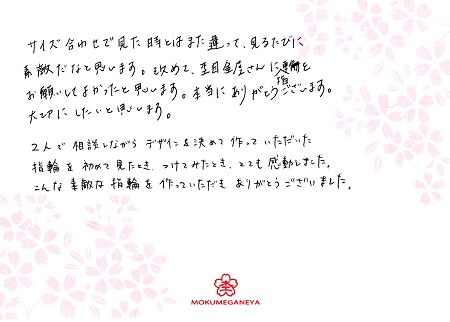 サイズ合わせで見た時とはまた違って、見るたびに
素敵だなと思います。改めて、杢目金屋さんに指輪を
お願いしてよかったと思います。本当にありがとうございます。
大切にしたいと思います。
2人で相談しながらデザインを決めて作っていただいた
指輪を初めて見たとき、つけてみたとき、とても感動しました。
こんな素敵な指輪を作っていただき ありがとうございました。
MOKUMEGANEYA